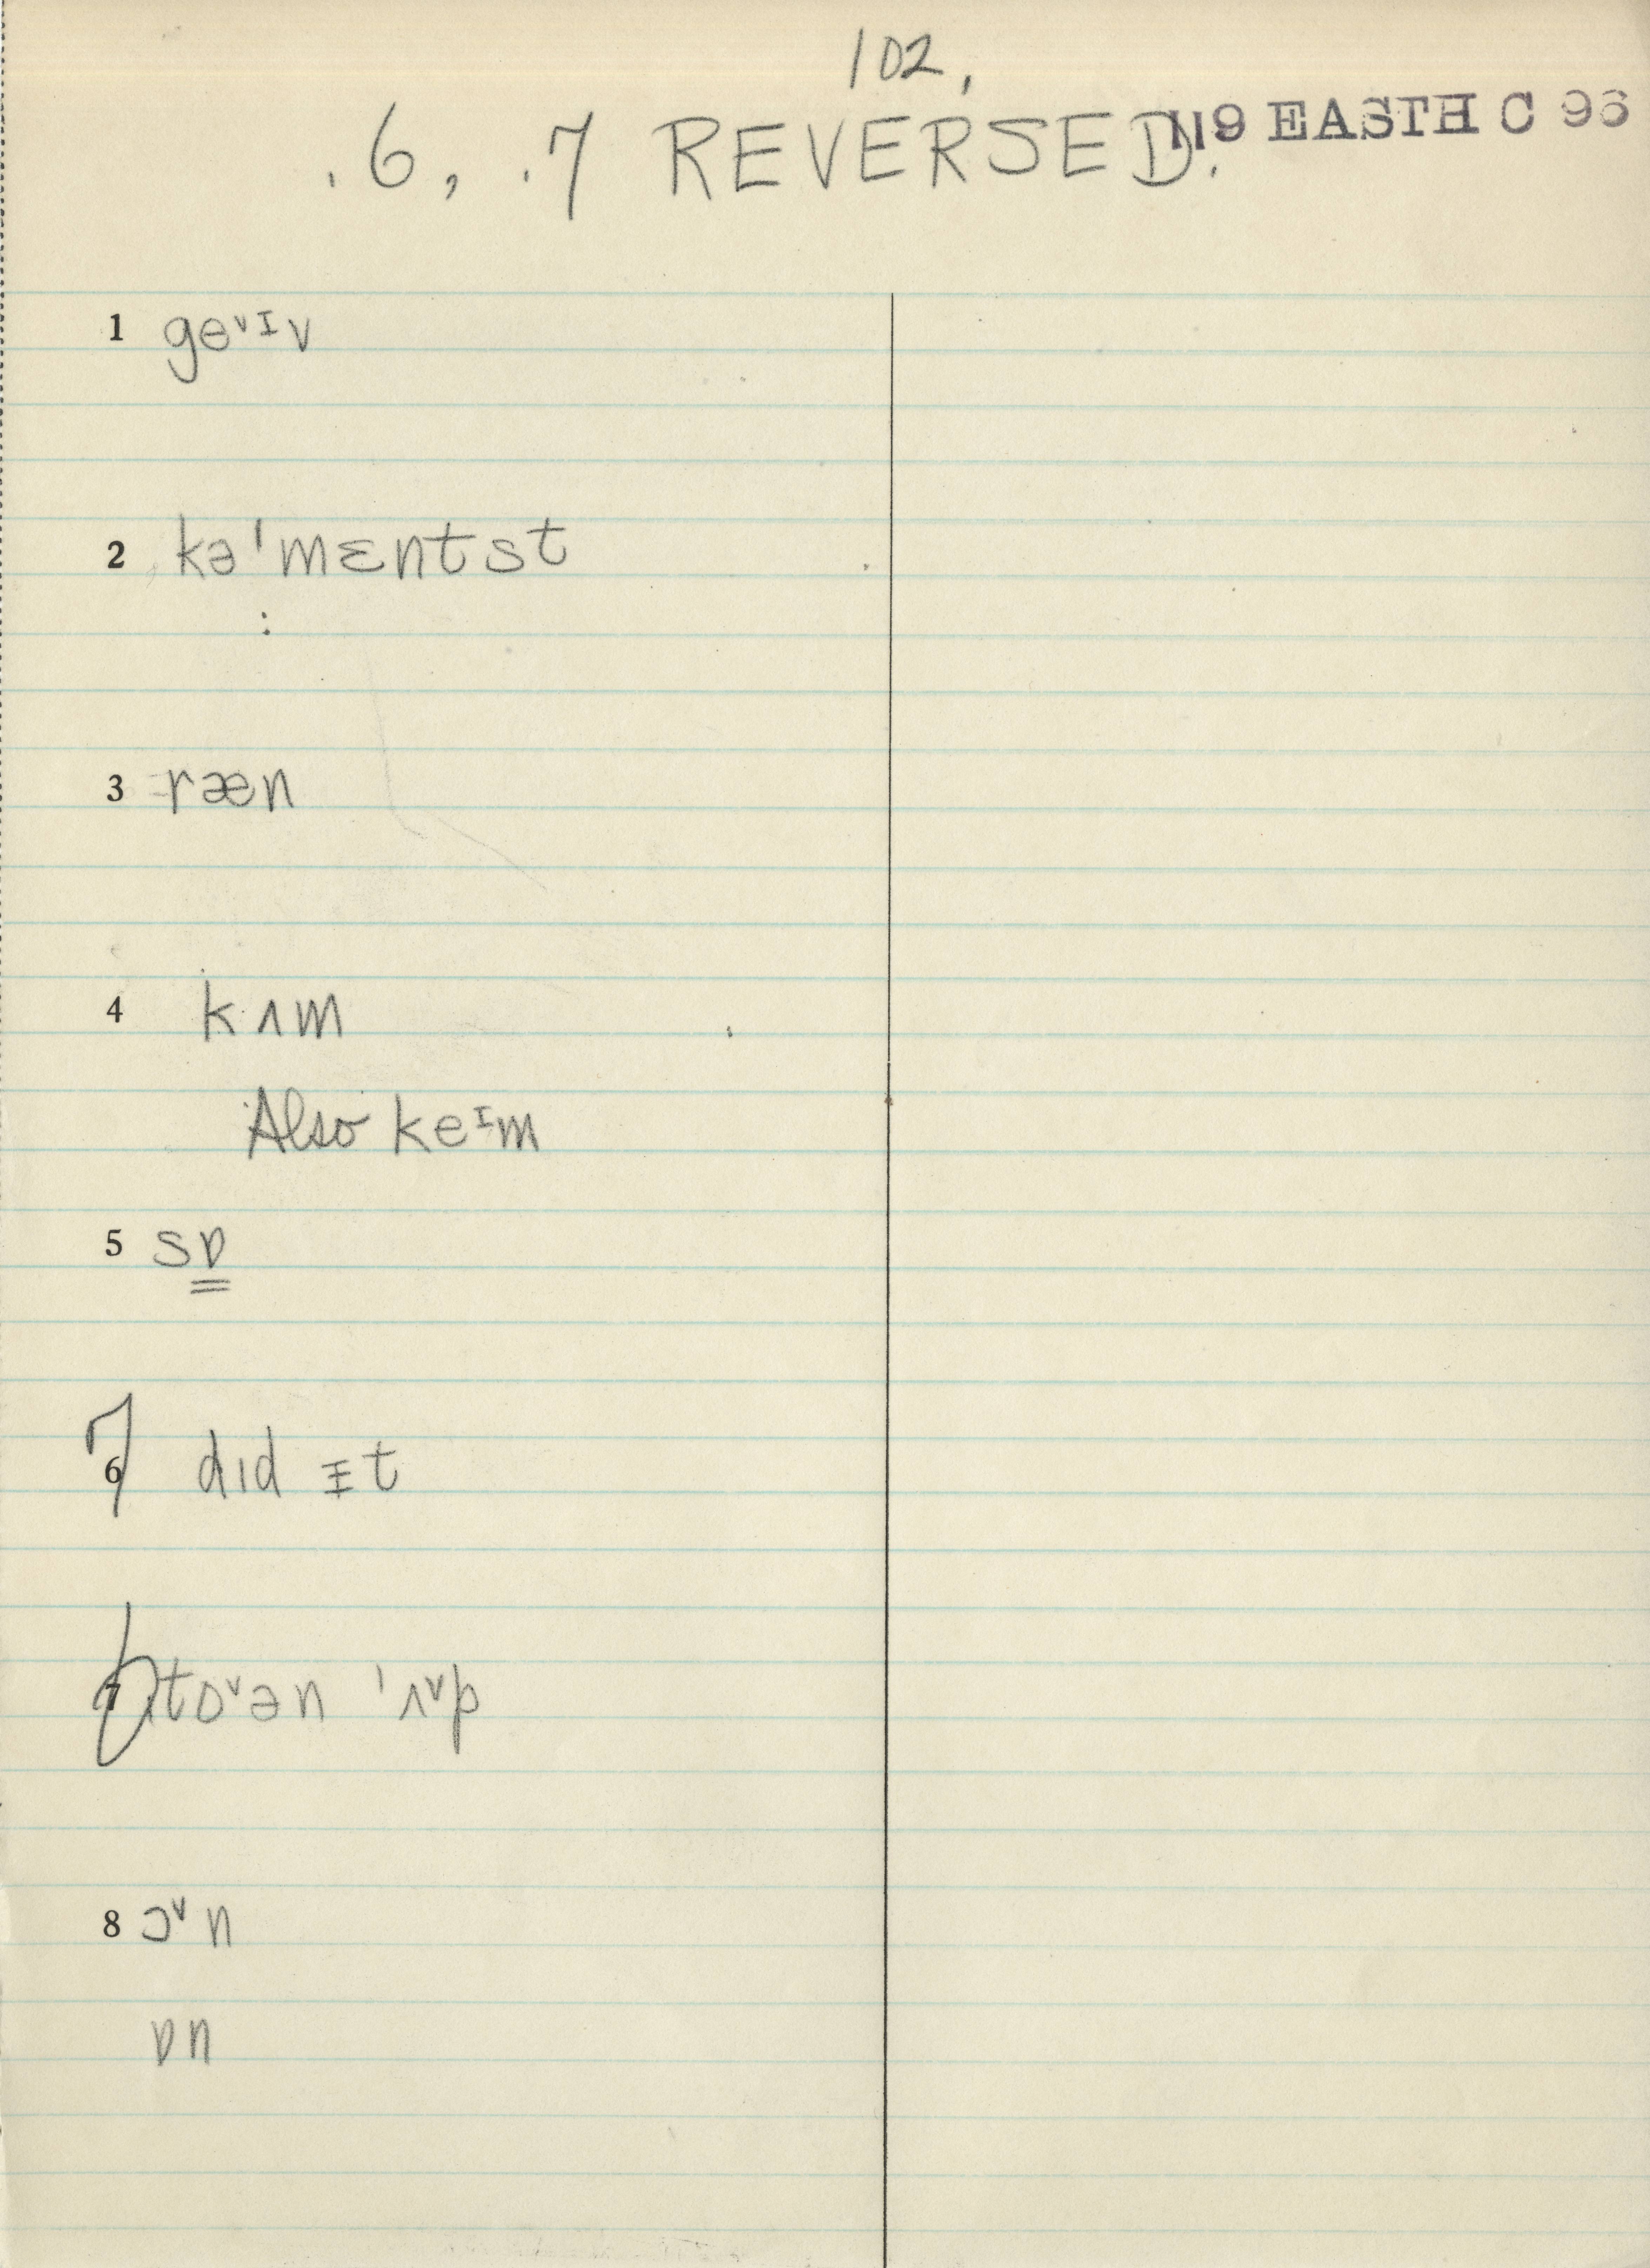 102,
.6, .7 REVERSED.
119 EASTH C 96
1 geᵛᶦv
2 kəˈmɛntst
:
3 ræn
4 kʌm
Also keᶦm
5 sɒ
7 6 dɪd ɪt
6 7 tɒᵛən ˈʌᵛp
8 ɔᵛn
ɒn